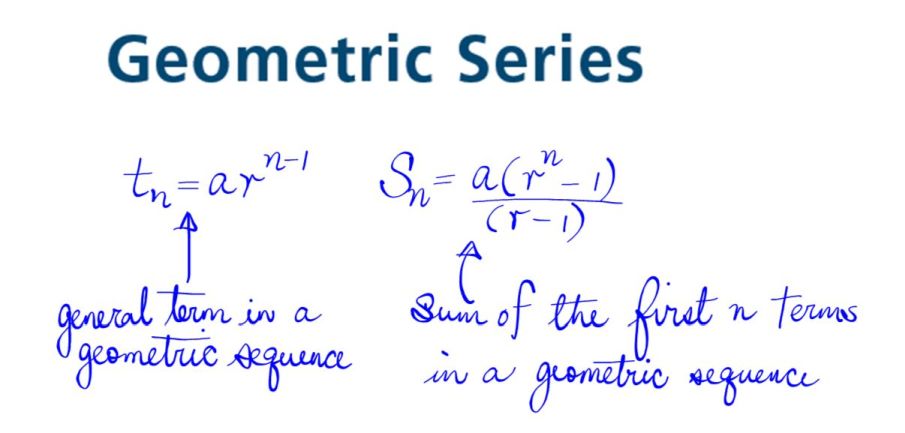 Geometric Series
tₙ = arⁿ⁻¹
Sₙ = a(rⁿ - 1) / (r - 1)
general term in a
geometric sequence
sum of the first n terms
in a geometric sequence